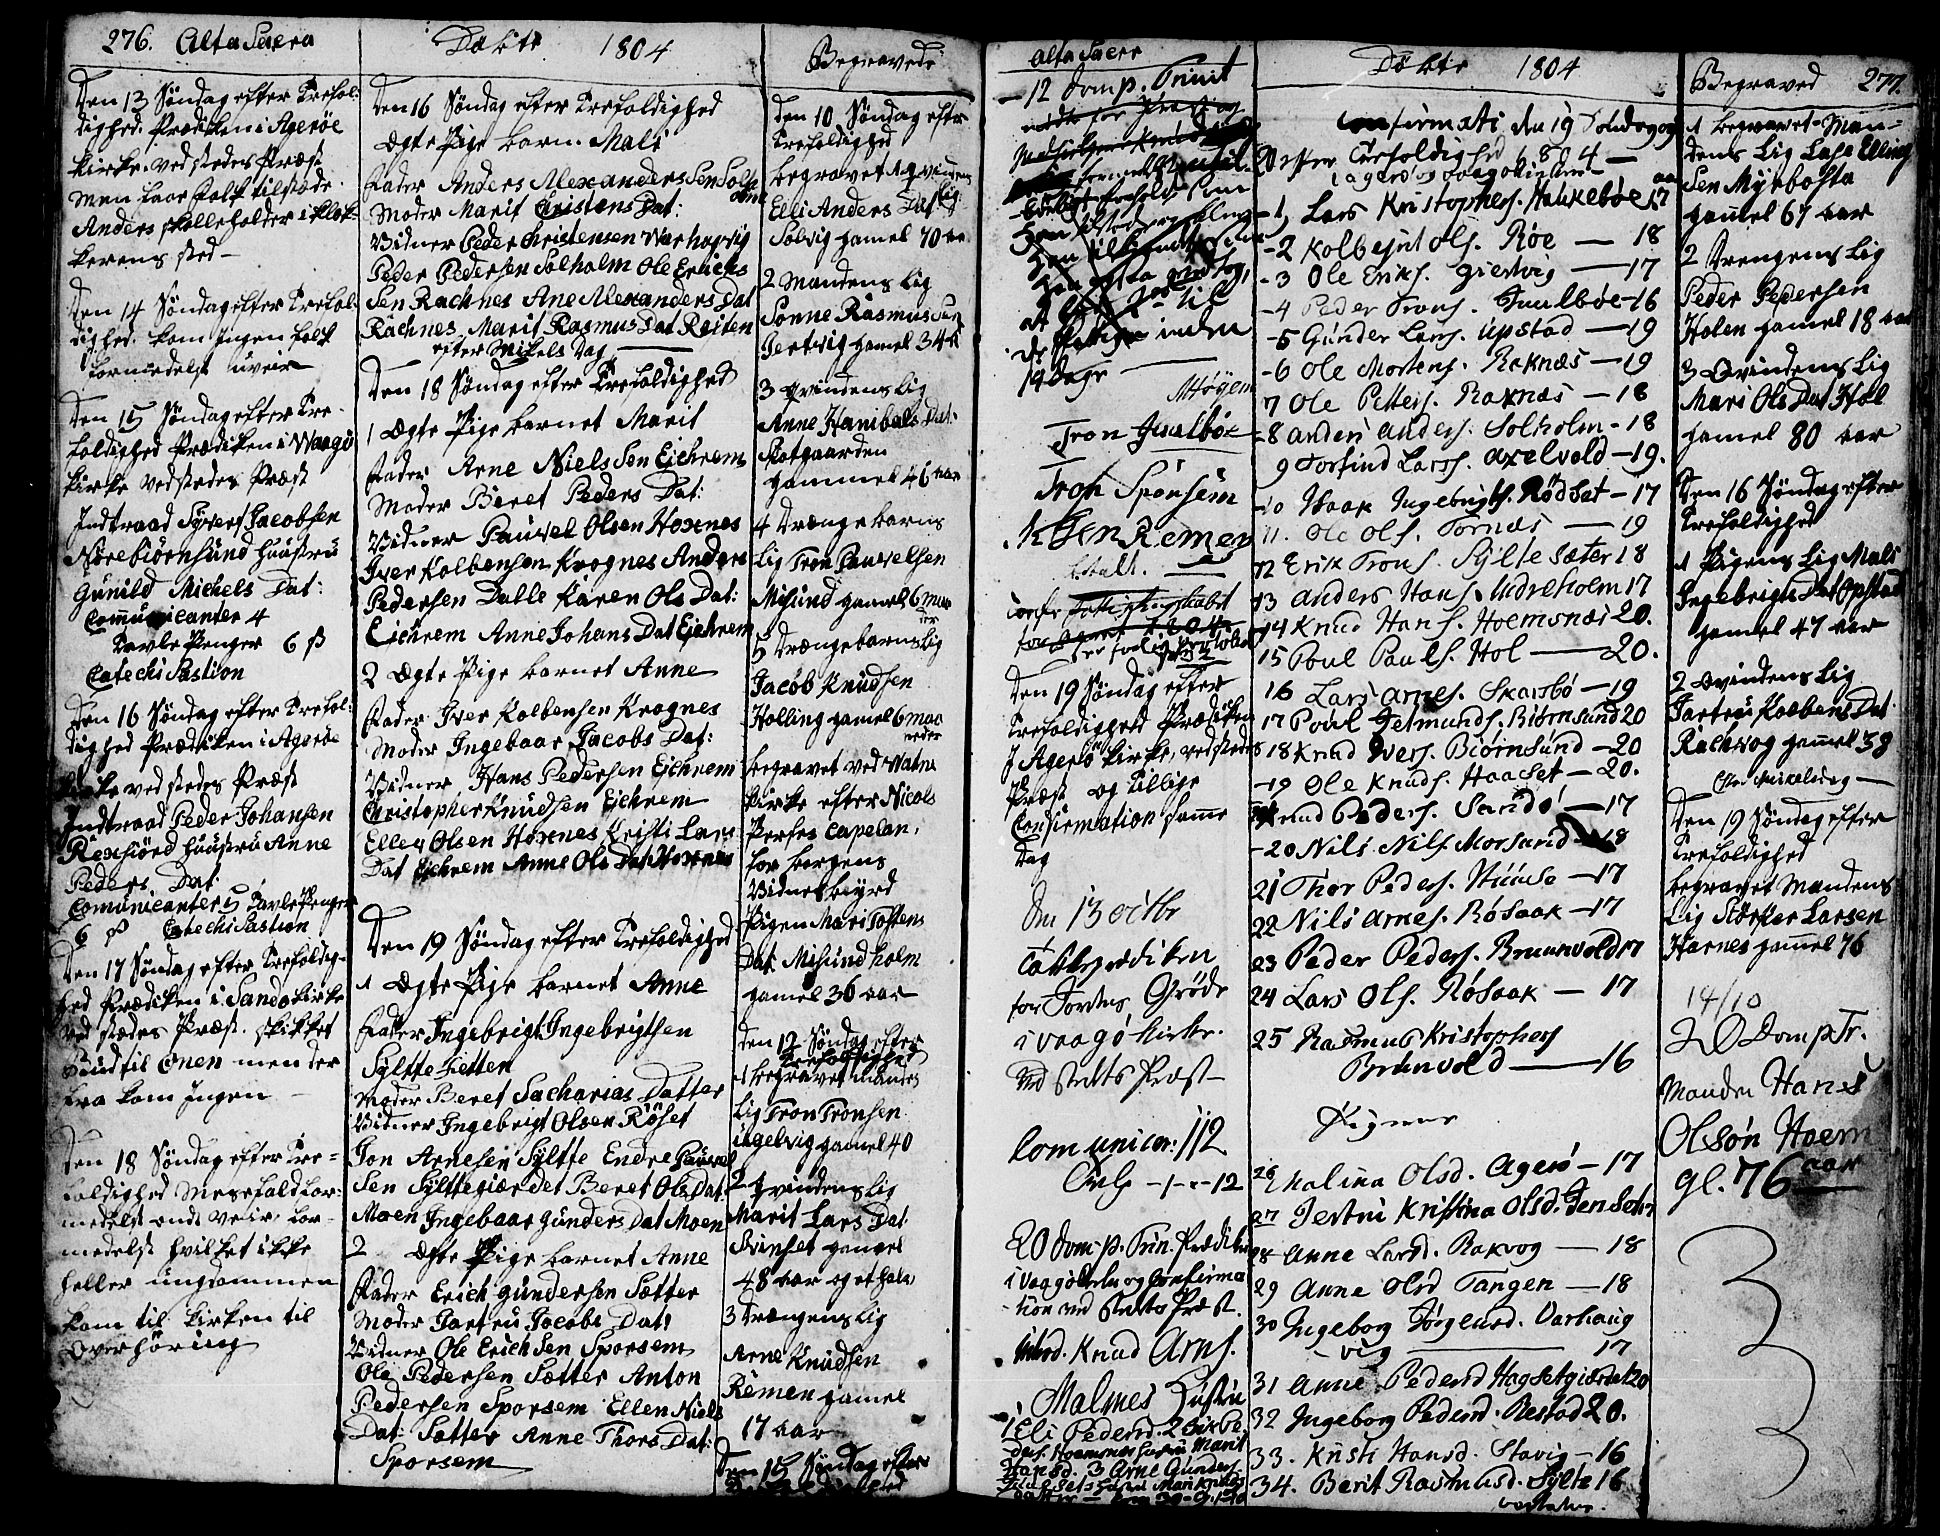 276. Alta Sacra
Den 13 Søndag efter Trefol-
dighed. Prædiken i Agerøe
Kirke. ved stedes Præst
men faae folk tilstæde
Anders skolleholder i klok-
kerens sted -
Den 14 Søndag efter Trefol-
dighed. kom Ingen folk
formedelst uveir
Den 15 Søndag efter Tre-
foldighed Prædiken i Waagø
Kirke ved stedes Præst
Indtraad Syvert Jacobsen
Nørebiørnsund Huustru
Gunild Michels Dat:
Communicanter 4
Tavle Penger 6 ß
CatechiSastion
Den 16 Søndag efter Trefol-
dighed Prædiken i Agerøe
Kirke ved stedes Præst
Indtraad Peder Johansen
Rexfiörd Huustru Anne
Peders Dat
Comunicanter 5 Tavle Penger
6 ß CatechiSastion
Den 17 Søndag efter Trefoldig-
hed Prædiken i Sandø Kirke
ved stædes Præst. skikket
Bud til Onen men der
fra kom Ingen
Den 18 Søndag efter Tre-
foldighed Messefald for-
medelst ondt veir, for-
medelst hvilket ikke
heller ungdommen
kom til kirken til
Overhøring
Døbte 1804
Den 16 Søndag efter Trefoldighed
Ægte Pige barn. Mali
Fader Anders Alexanders Sen Solh
olm
Moder Marit Cristens Dat:
Vidner Peder Christensen Warhouvig
Peder Pedersen Solholm Ole Erichs
Sen Rachnes Ane Alexanders Dat
Rachnes, Marit Rasmus Dat Reiten
efter Mikels Dag
Den 18 Søndag efter Trefoldighed
1 Ægte Pige barnet Marit
Fader Arne Niels Sen Eichrem
Moder Beret Peders Dat:
Vidner Pauvel Olsen Hoxnes
Iver Kolbensen Krognes Anders
Pedersen Dalle Karen Ols Dat:
Eichrem Anne Johans Dat Eichrem
2 Ægte Pige barnet Anne
Fader Iver Kolbensen Krognes
Moder Ingebaar Jacobs Dat:
Vidner Hans Pedersen Eichrem
Christopher Knudsen Eichrem
Ellev Olsen Hoxnes Kristi Lars
Dat Eichrem Anne Ols Dat Hoxnes
Den 19 Søndag efter Trefoldighed
1 Ægte Pige barnet Anne
Fader Ingebrigt Ingebrigtsen
Sylte Setter
Moder Beret Sacharias Datter
Vidner Ingebrigt Olsen Röset
Jon Arnesen Syltte Endre Pauvel
Sen Syltegiærdet Beret Ols Dat:
Moen Ingebaar Gunders Dat Moen
2 Ægte Pige barnet Anne
Fader Erich Gundersen Sætter
Moder Jartru Jacobs Dat:
Vidner Ole Erich Sen Sporsem
Ole Pedersen Sætter Anton
Pedersen Sporsem Ellen Niels
Dat: Sætter Anne Thors Dat:
Sporsem
Begravede
Den 10 Søndag efter
Trefoldighed
begravet 1 qvindens
Elli Anders Dat Lig
Solvig gamel 70 aar
2 Mandens Lig
Sonne Rasmus Sen
Jertvig gamel 34
3 Qvindens Lig
Anne Hanibals Dat:
Slotgaarden
gammel 46 aar
4 Drænge barns
Lig Tron Pauvelsen
Misund gamel 6 maa
der
5 Drængebarns Lig
Jacob Knudsen
Holling gamel 6 maa
neder
begravet ved Watne
Kirke efter Nicols
Perses Capelan,
for borgens
Vidnesbyrd
Pigen Mari Toftens
Dat Misund holm
gamel 36 aar
Den 12 Søndag efter
Trefoldighed
1 begravet mandens
Lig Tron Tronsen
ingelvig gamel 40
2 Qvindens Lig
Marit Lars Dat
Svinset gamel
48 aar og et halv
3 Drængens Lig
Arne Knudsen
Remen gamel
17 aar
Den 15 Søndag efter
Alta Sacr
12 Dom p. Trinit
19 Dage
Tron Huulbøe
Tron Sponsem
Den 19 Søndag efter
Trefoldighed Prædiken
I Agerø Kirke, ved stedes
Præst og Tillige
Confirmation samme
Dag
Den 13 octbr
Takkeprædiken
for Jordens Grøde
i Vaagö Kirke.
ved stedets Præst
Comunicer: 112
Tavle -1-"-12
20 Dom. p. Trin. Prædiken
i Vaagö Kirke og Confirma
tion ved stedets Præst.
Introd. Knud Arns.
Malmes Hustru
1 Eli Pedersd. 2 Erik Pe
ders. Hoemsnes hustru Marit
Hansd. 3 Arne Gunders
Døbte 1804
Confirmati den 19 Søndag og
20 efter Trefoldighed 1804 -
i agerø og Vaagø Kirker
1, Lars Kristophers. Haukebøe 17
-2 Kolbejnt Ols. Røe - 18
-3 Ole Eriks. Giertvig - 17
-4 Peder Trons. Huulbøe - 16
-5 Gunder Lars. Upstad - 19
-6 Ole Mortens. Raknæs - 19
7 Ole Petters. Raknæs - 18
-8 Anders Anders. Solholm - 18
9 Torfind Larss. Axelvold - 19.
-10 Isaak Ingebrigts. Rødset - 17
11. Ole Ols. Tornæs - 19
12 Erik Trons. Sylte Sæter 18
13 Anders Hans. Indreholm 17
14 Knud Hans. Hoemsnæs 20.
15 Poul Pauls. Hol - 20.
16 Lars Arnes. Skarsbö - 19
17 Poul Getmunds. Biørnsund 20
18 Knud Ivers. Biörnsund - 20
-19 Ole Knuds. Haaset - 20.
Knud Peders. Sandö - 17
-20 Nils Nils. Morsund - 18
21 Thor Peders. Huuse - 17
22 Nils Arnes. Rösaak - 17
23 Peder Peders. Bruunvold 17
24 Lars Ols. Rösaak - 17
25 Rasmus Kristophers
Brunvold - 16
Pigerne
26 Malina Olsd. Agerö - 17
27 Jertru Kristina Olsd. Jenset 17
28 Anne Larsd. Rakvog - 18
29 Anne Olsd Tangen - 18
30 Ingeborg Jörgensd. Varhaug
vig - 17
31 Anne Pedersd Hagsetgiærdet 20
32 Ingeborg Pedersd. Nestad 20.
33. Kristi Hansd. Stavig - 16
34. Berit Rasmusd. Sylte 16
vertatur.
Begraved 277.
1 begravet - Man-
dens Lig Lasse Elling
Sen Myrbosta
gamel 67 aar
2 Drengens Lig
Peder Pedersen
Holen gamel 18 aar
3 Qvindens Lig
Mari Ols Dat Hol
gamel 80 aar
Den 16 Søndag efter
Trefoldighed
1 Pigens Lig Mali
Ingebrigts Dat Opstad
gamel 47 aar
2 Qvindens Lig
Jartru Kolbens Dat
Rachvog gamel 38
Efter Mikelsdag
Den 19 Søndag efter
Trefoldighed
begravet Mandens
Lig Störker Larsen
Harnes gamel 76
14/10
20 Dom p Tr.
Manden Hans
Olsøn Hoem
gl. 76 aar